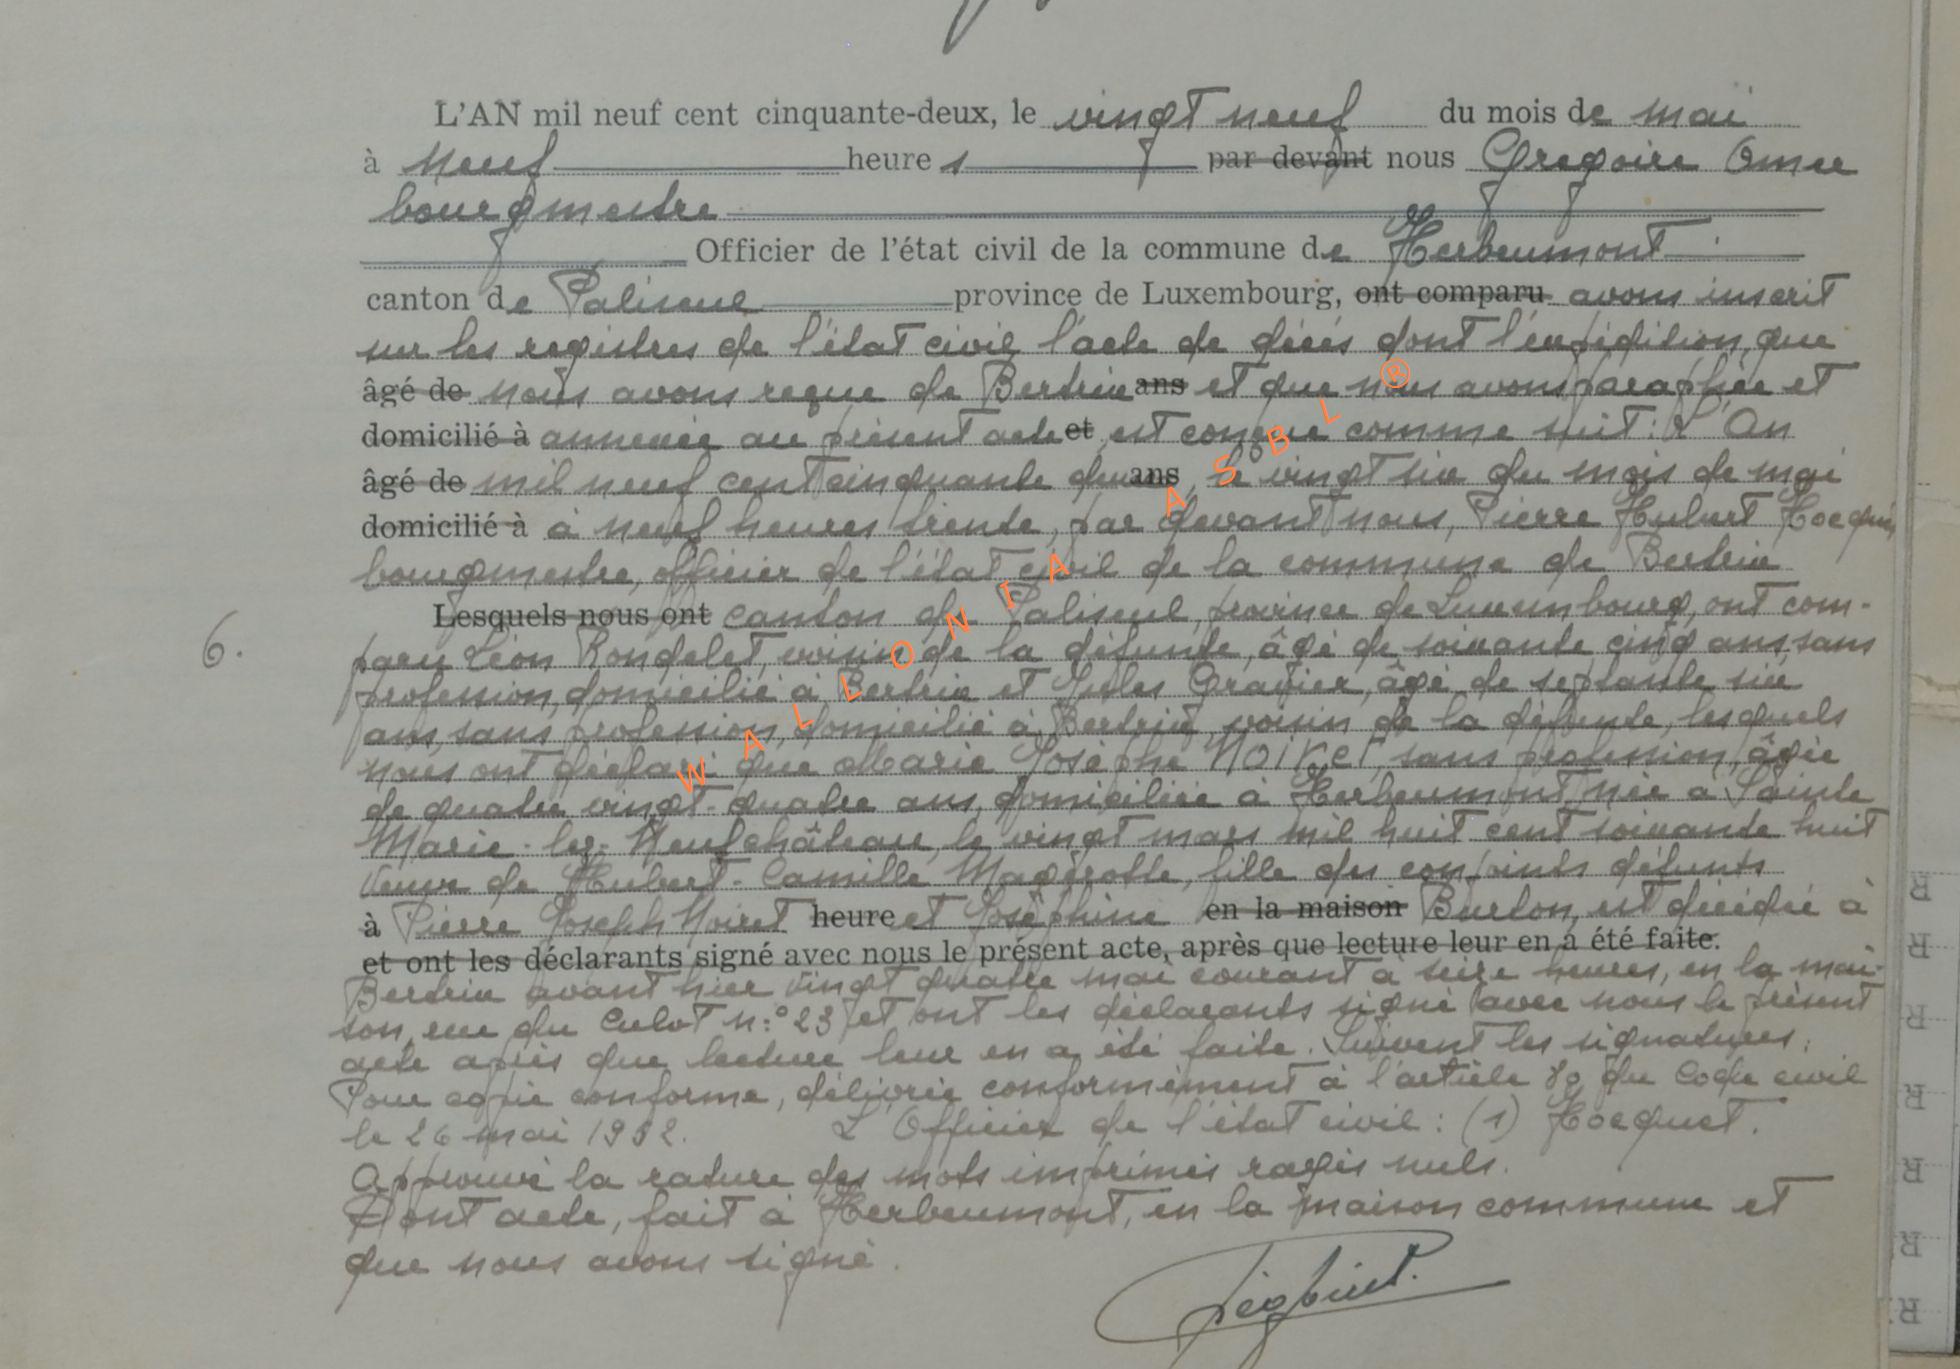 L'AN mil neuf cent cinquante-deux, le vingt neuf du mois de mai
à neuf heures par devant nous Gregoire Omer
bourgmestre
Officier de l'état civil de la commune de Herbeumont
canton de Paliseul province de Luxembourg, ont comparu avons inscrit
sur les registres de l'état civil l'acte de décès dont l'expédition, que
âgé de nous avons reçue de Bertrix ans et que nous avons paraphée et
domicilié à annexée au présent acte et est conçue comme suit: L'An
âgé de mil neuf cent cinquante deux ans, le vingt six du mois de mai
domicilié à à neuf heures trente, par devant nous, Pierre Hubert Hocquet
bourgmestre, officier de l'état civil de la commune de Bertrix
Lesquels nous ont canton de Paliseul, province de Luxembourg, ont com-
6.
paru Léon Rondelet, voisin de la défunte, âgé de soixante cinq ans, sans
profession, domicilié à Bertrix et Jules Gragier, âgé de septante six
ans, sans profession, domicilié à Bertrix, voisin de la défunte, lesquels
nous ont déclaré que Marie Josèphe NOIRET, sans profession, âgée
de quatre vingt-quatre ans, domiciliée à Herbeumont, née à Sainte
Marie-lez-Neufchâteau, le vingt mars mil huit cent soixante huit
veuve de Hubert-Camille Magerotte, fille des conjoints défunts
à Pierre Joseph Noiret heure et Josephine en la maison Burton, est décédée à
et ont les déclarants signé avec nous le présent acte, après que lecture leur en a été faite.
Bertrix avant hier vingt quatre mai courant à seize heures, en la mai-
son, rue du Culot n:° 23 et ont les déclarants signé avec nous le présent
acte après que lecture leur en a été faite. Suivent les signatures:
Pour copie conforme, délivrée conformément à l'article 80 du Code civil
le 26 mai 1952. L'Officier de l'état civil: (1) Hocquet.
Approuvé la rature des mots imprimés rayés nuls.
Dont acte, fait à Herbeumont, en la maison commune et
que nous avons signé.
WALLONIA ASBL ®
R
R
R
R
R
R
R